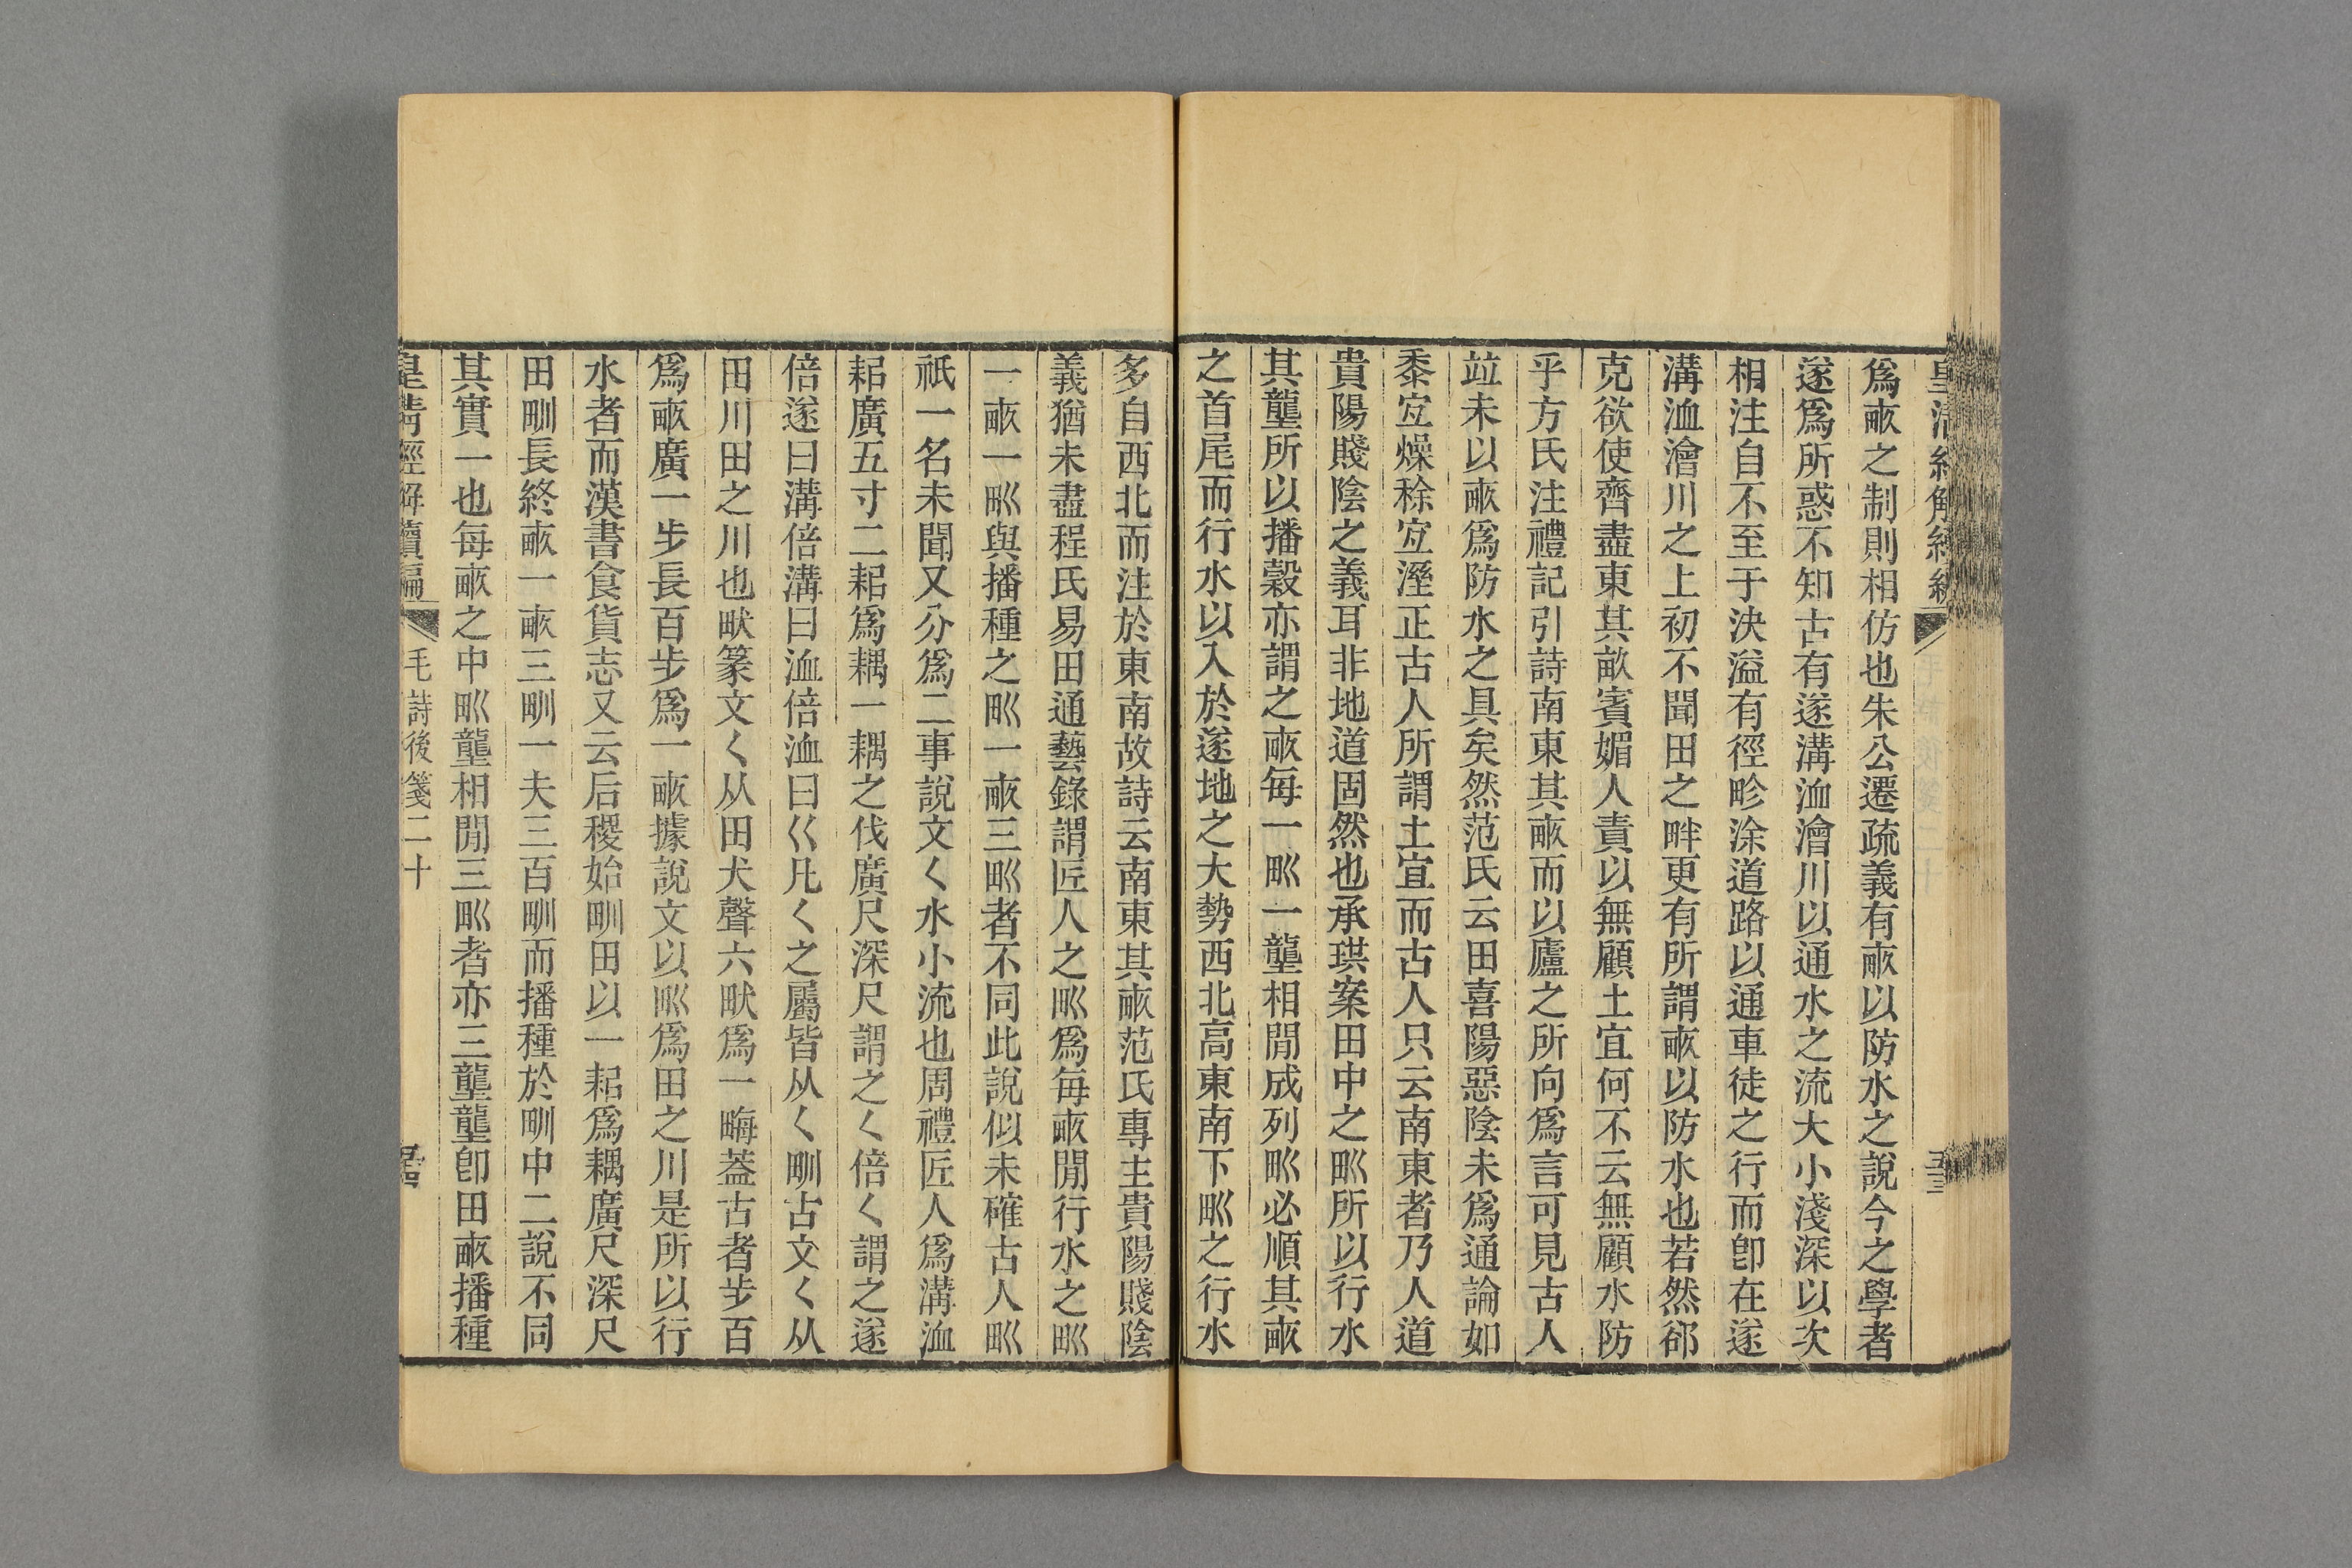 爲畝之制則相仿也朱公遷疏義有畝以防水之說今之學者
遂爲所惑不知古有遂溝洫澮川以通水之流大小淺深以次
相注自不至于決溢有徑畛涂道路以通車徒之行而卽在遂
溝洫澮川之上初不聞田之畔更有所謂畝以防水也若然郤
克欲使齊盡東其畝賓媚人責以無顧土宜何不云無顧水防
乎方氏注禮記引詩南東其畝而以廬之所向爲言可見古人
竝未以畝爲防水之具矣然范氏云田喜陽惡陰未爲通論如
黍宐燥稌宐溼正古人所謂土宜而古人只云南東者乃人道
貴陽賤陰之義耳非地道固然也承珙案田中之甽所以行水
其壟所以播穀亦謂之畝每一甽一壟相閒成列甽必順其畝
之首尾而行水以入於遂地之大勢西北高東南下甽之行水
多自西北而注於東南故詩云南東其畝范氏專主貴陽賤陰
義猶未盡程氏易田通藝錄謂匠人之甽爲每畝閒行水之甽
一畝一甽與播種之甽一畝三甽者不同此說似未確古人甽
祇一名未聞又分爲二事說文𡿨水小流也周禮匠人爲溝洫
耜廣五寸二耜爲耦一耦之伐廣尺深尺謂之𡿨倍𡿨謂之遂
倍遂曰溝倍溝曰洫倍洫曰巜凡𡿨之屬皆从𡿨甽古文𡿨从
田川田之川也畎篆文𡿨从田犬聲六畎爲一畮葢古者步百
爲畝廣一步長百步爲一畝據說文以甽爲田之川是所以行
水者而漢書食貨志又云后稷始甽田以一耜爲耦廣尺深尺
田甽長終畝一畝三甽一夫三百甽而播種於甽中二說不同
其實一也每畝之中甽壟相閒三甽者亦三壟壟卽田畝播種
皇清經解續編
毛詩後箋二十